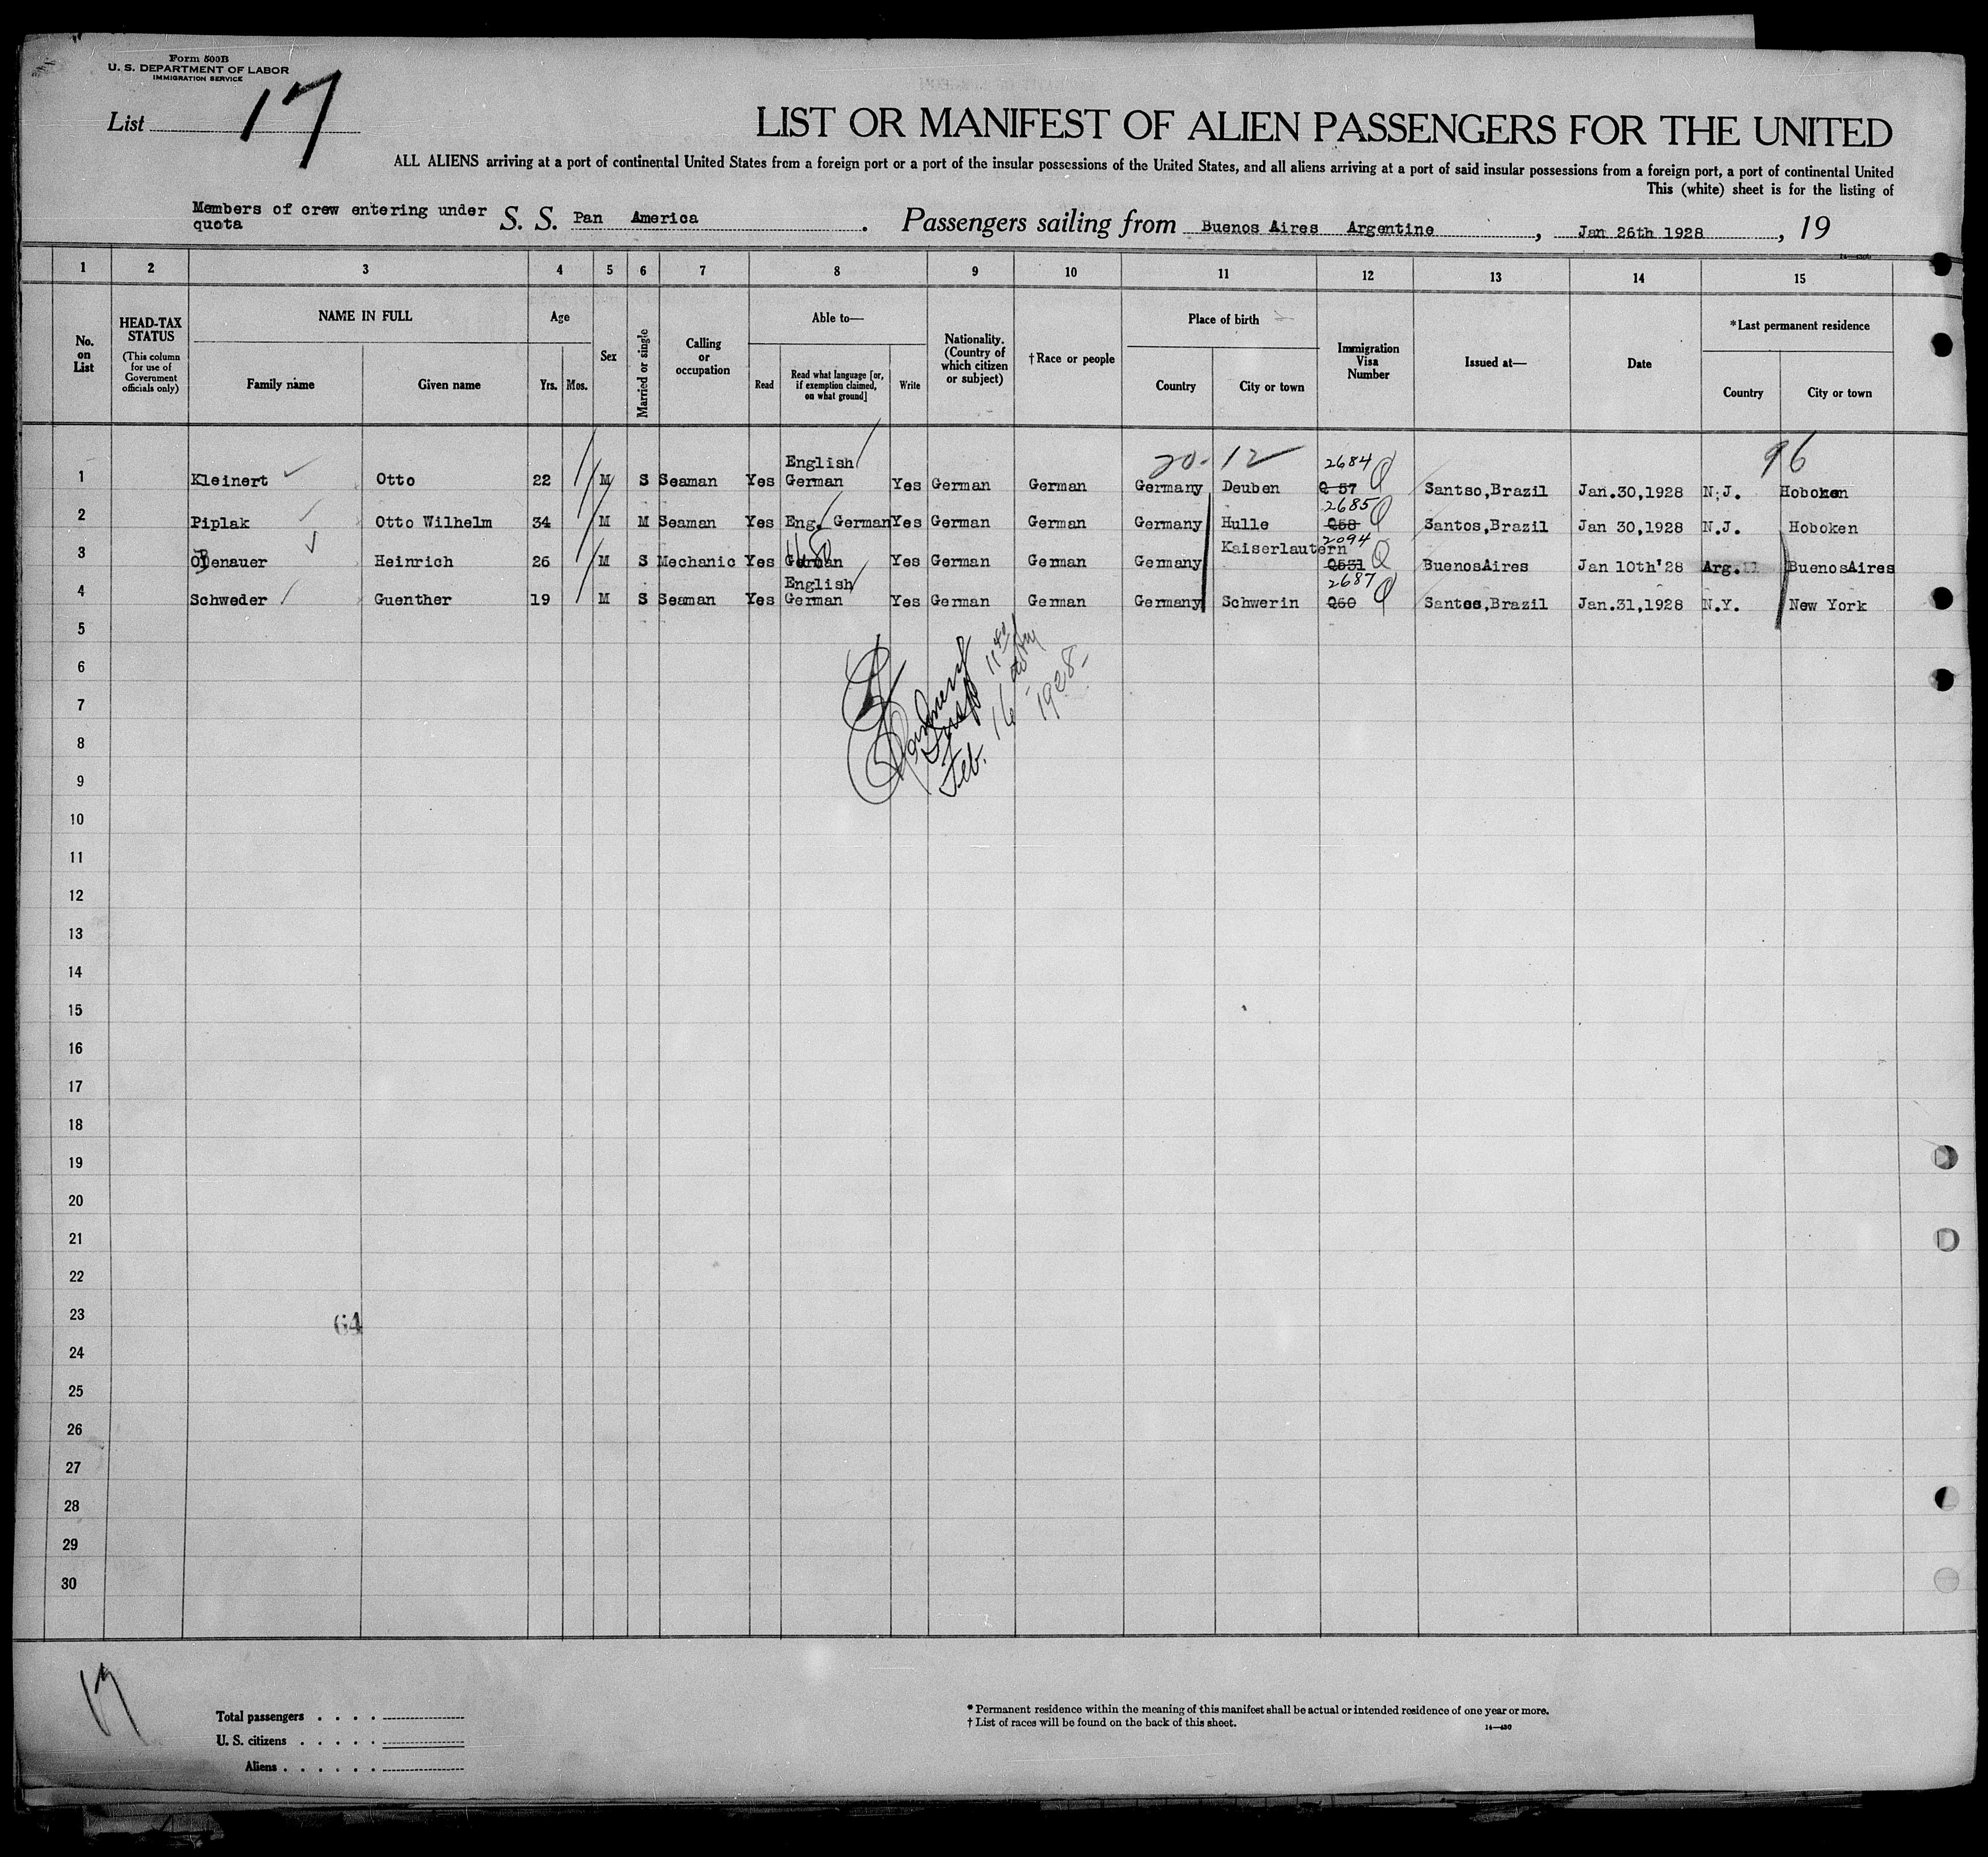 Form 500B
U. S. DEPARTMENT OF LABOR
IMMIGRATION SERVICE
List 17
LIST OR MANIFEST OF ALIEN PASSENGERS FOR THE UNITED
ALL ALIENS arriving at a port of continental United States from a foreign port or a port of the insular possessions of the United States, and all aliens arriving at a port of said insular possessions from a foreign port, a port of continental United
This (white) sheet is for the listing of
Members of crew entering under quota S. S. Pan America. Passengers sailing from Buenos Aires Argentine, Jan 26th 1928, 19
1 2 3 4 5 6 7 8 9 10 11 12 13 14 15
No. on List
HEAD-TAX STATUS
(This column for use of Government officials only)
NAME IN FULL
Family name Given name
Age
Yrs. Mos.
Sex
Married or single
Calling or occupation
Able to—
Read
Read what language [or, if exemption claimed, on what ground]
Write
Nationality. (Country of which citizen or subject)
†Race or people
Place of birth
Country City or town
Immigration Visa Number
Issued at—
Date
*Last permanent residence
Country City or town
20-12 96
1 Kleinert Otto 22 M S Seaman Yes English German Yes German German Germany Deuben Q 57 2684 Q Santso,Brazil Jan.30,1928 N.J. Hoboken
2 Piplak Otto Wilhelm 34 M M Seaman Yes Eng. German Yes German German Germany Hulle Q58 2685 Q Santos,Brazil Jan 30,1928 N.J. Hoboken
3 Heinrich 26 M S Mechanic Yes German Yes German German Germany Kaiserlautern 2094 Q BuenosAires Jan 10th'28 Arg. BuenosAires
4 Schweder Guenther 19 M S Seaman Yes English German Yes German German Germany Schwerin Q60 2687 Q Santos,Brazil Jan.31,1928 N.Y. New York
5
6
7
8
9
10
11
12
13
14
15
16
17
18
19
20
21
22
23
24
25
26
27
28
29
30
Insp
Feb. 16 1928-
64
17
Total passengers . . . .
U. S. citizens . . . . .
Aliens . . . . . .
* Permanent residence within the meaning of this manifest shall be actual or intended residence of one year or more.
† List of races will be found on the back of this sheet.
14—430